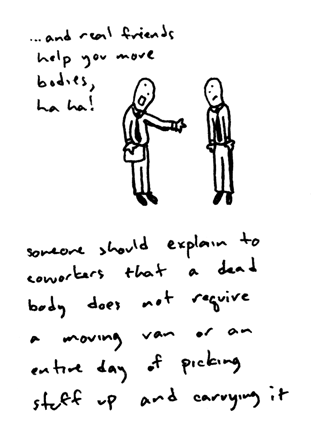 ...and real friends
help you move
bodies,
ha ha!
someone should explain to
coworkers that a dead
body does not require
a moving van or an
entire day of picking
stuff up and carrying it